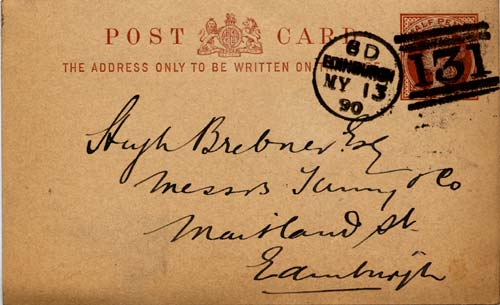 POST CARD
THE ADDRESS ONLY TO BE WRITTEN ON
HALF PE
6 D
EDINBURGH
MY 13
90
131
Hugh Brebner Esq
Messrs Tunny & Co
Maitland St
Edinburgh